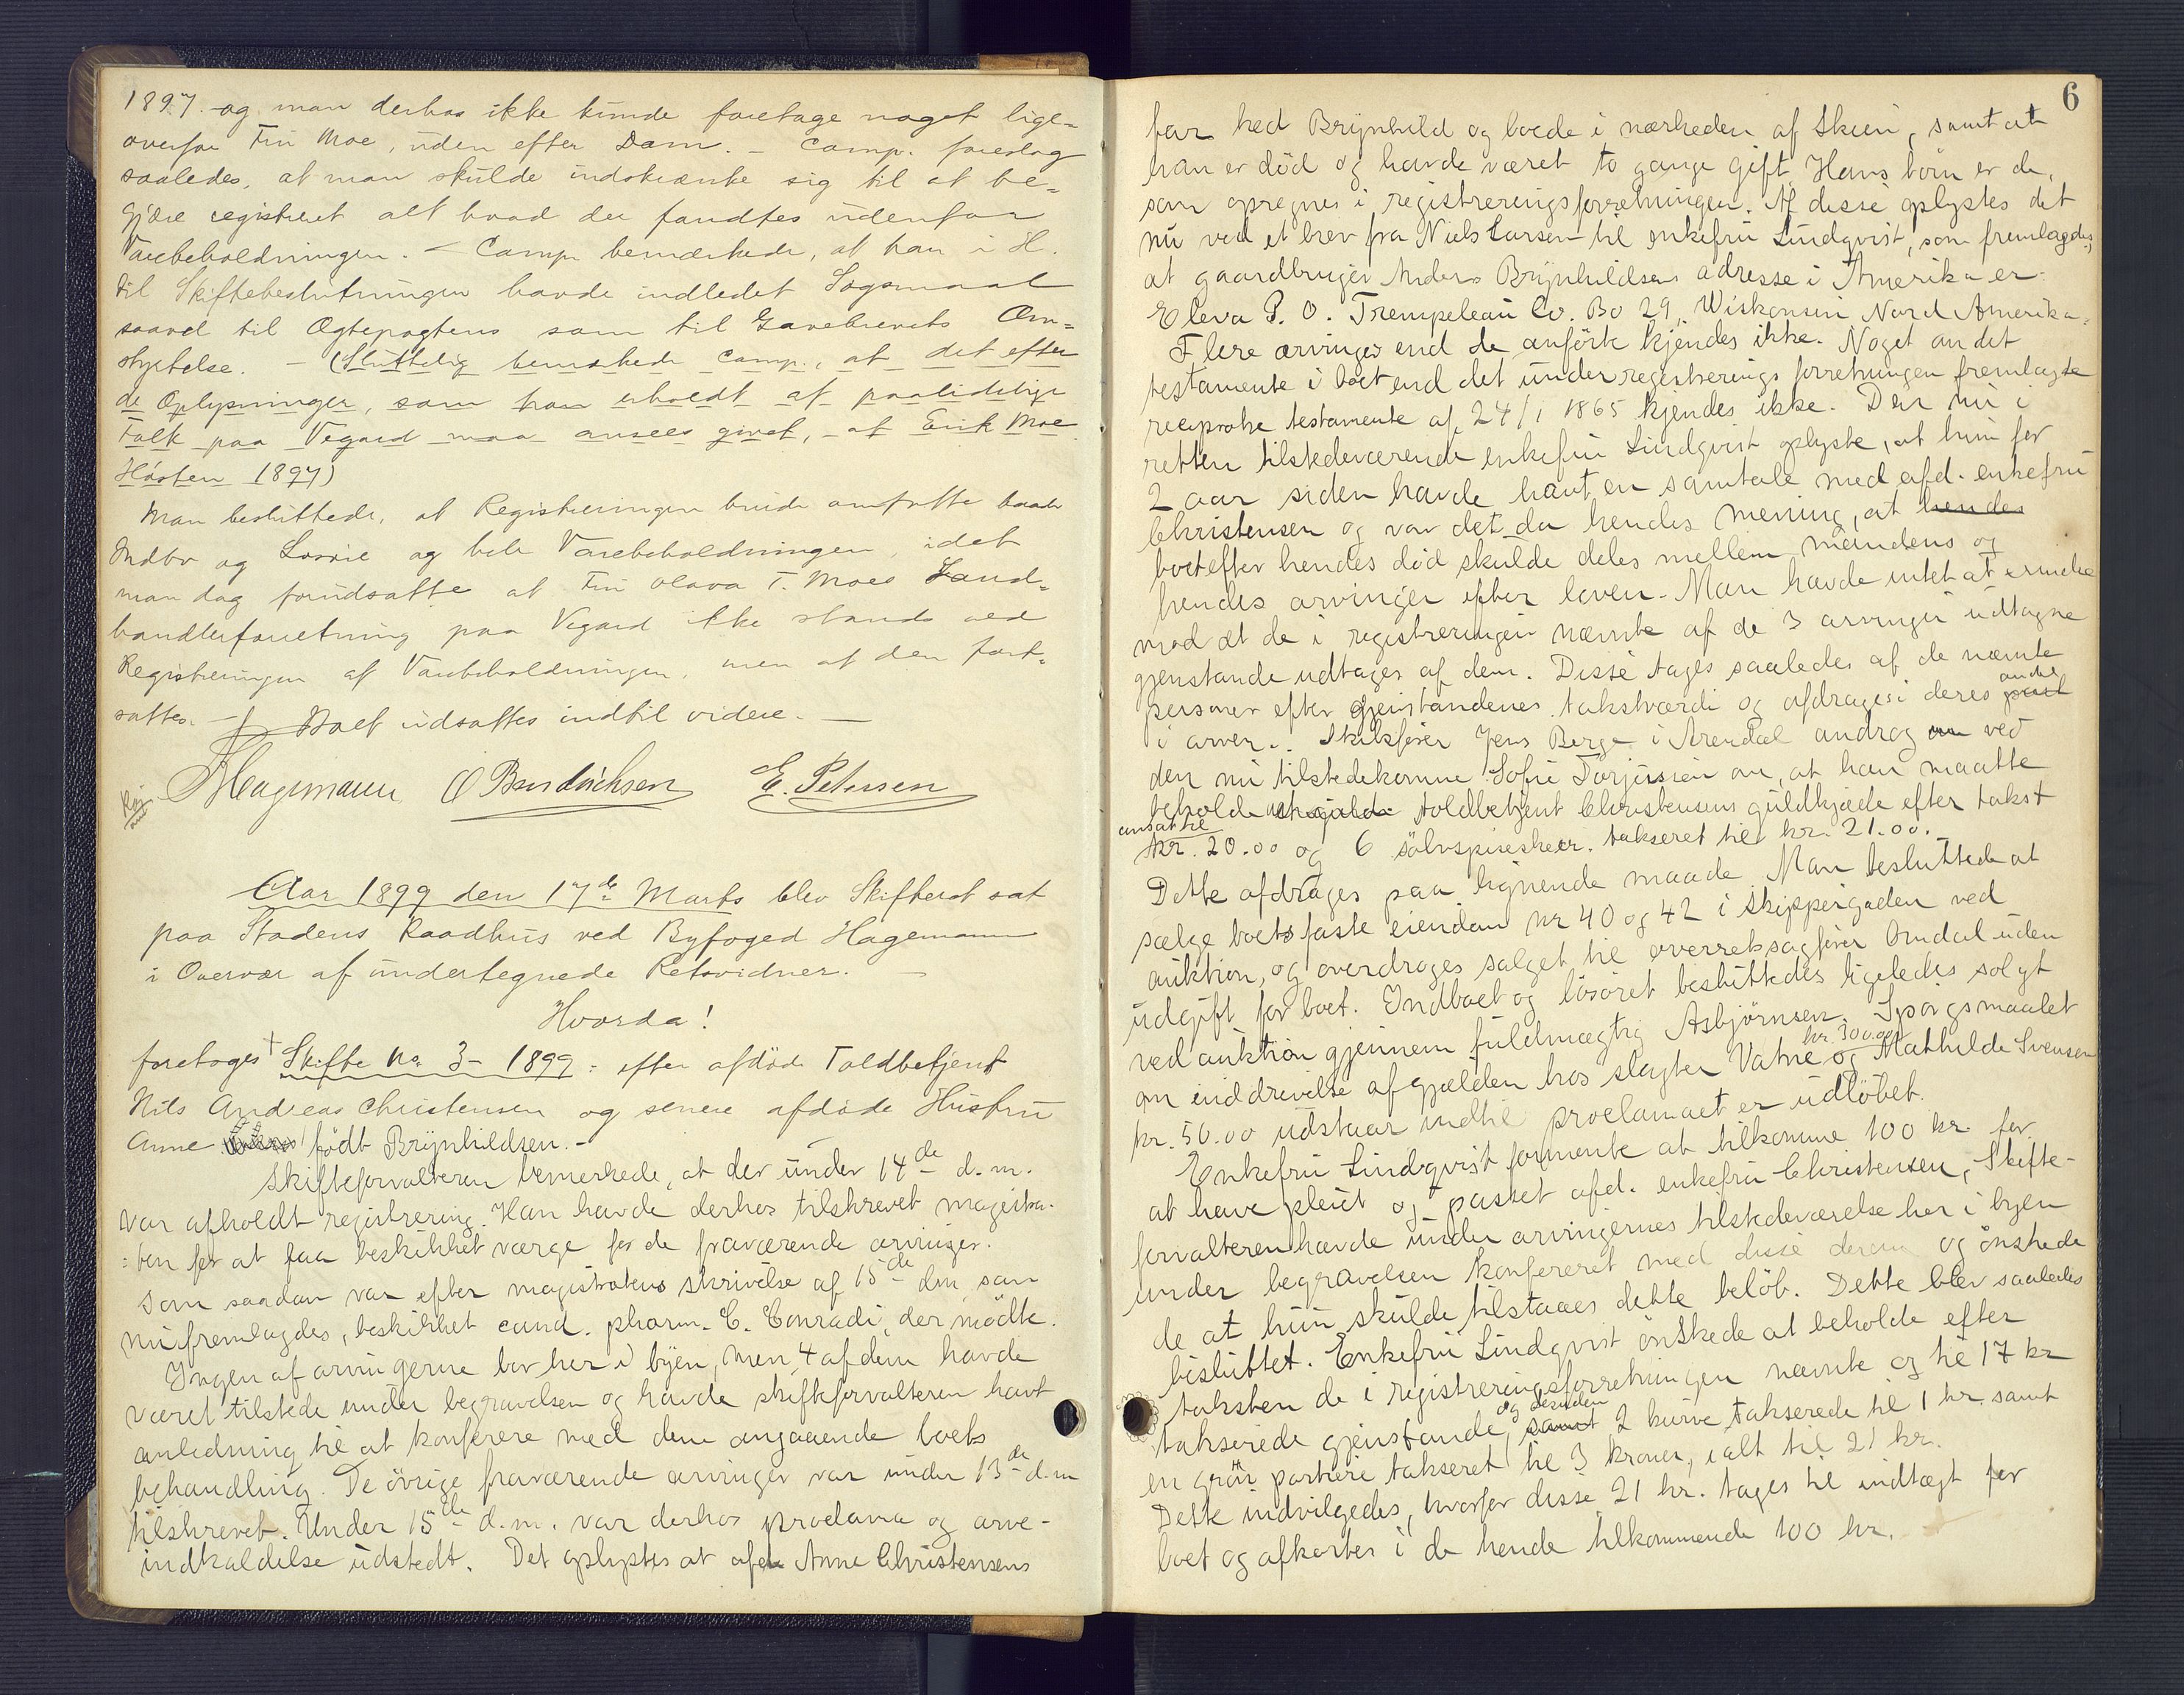 1897 - og man derhos ikke kunde foretage noget lige=
overfor Fru Moe, uden efter Dom. - Comp. foreslog
saaledes, at man skulde indskrænke sig til at be=
gjære registreret alt hvad der fandtes udenfor
Varebeholdningen. - Comp. bemærkede, at han i H.
til Skiftebeslutningen havde indledet Søgsmaal
saavel til Ægtepagtens som til Gavebrevets Om=
styrtelse. - (Sluttelig bemærkede Comp., at det efter
de Oplysninger, som han erholdt af paalidelige
Folk paa Vegard maa ansees givet, - at Erik Moe
Høsten 1897)
Man besluttede, at Registreringen burde omfatte baade
Indbo og Løsøre og hele Varebeholdningen, idet
man dog forudsatte at Fru Olava T. Moes Land=
handlerforretning paa Vegard ikke stands ved
Registreringen af Varebeholdningen, men at den fort=
sattes. - Boet udsattes indtil videre. -
Hagemann O Bendichsen E. Petersen
Aar 1899 den 17de Marts blev Skifteret sat
paa Stadens Raadhus ved Byfoged Hagemann
i Overvær af undertegnede Retsvidner.
Hvorda!
foretoges + Skifte No. 3 - 1899: efter afdøde Toldbetjent
Nils Andreas Christensen og senere afdøde Hustru
Anne født Brynhildsen. -
Skifteforvalteren bemerkede, at der under 14de d.m.
var afholdt registrering. Han havde derhos tilskrevet magistra-
:ten for at faa beskikket værge for de fraværende arvinger.
Som saadan var efter magistratens skrivelse af 15de dm, som
nu fremlagdes, beskikket cand. pharm. C. Conradi, der mødte.
Ingen af arvingerne bor her i byen, men 4 af dem havde
været tilstede under begravelsen og havde skifteforvalteren havt
anledning til at konferere med dem angaaende boets
behandling. De øvrige fraværende arvinger var under 13de d.m
tilskrevet. Under 15de d.m. var derhos proclama og arve-
indkaldelse udstedt. Det oplystes at afd. Anne Christensens
6
far hed Brynhild og boede i nærheden af Skien, samt at
han er død og havde været to gange gift. Hans børn er de,
som opregnes i registreringsforretningen. Af disse oplystes det
nu ved et brev fra Niels Larsen til enkefru Lindqvist, som fremlagdes,
at gaardbruger Anders Brynhildsens adresse i Amerika er
Eleva P. O. Trempeleau Co. Bo 29, Wiskonsin Nord Amerika.
Flere arvinger end de anførte kjendes ikke. Noget andet
testamente i boet end det under registrerings forretningen fremlagte
reciproke testamente af 24/1 1865 kjendes ikke. Den nu i
retten tilstedeværende enkefru Lindqvist oplyste, at hun for
2 aar siden havde havt en samtale med afd. enkefru
Christensen og var det da hendes mening, at hendes
boet efter hendes død skulde deles mellem mandens og
hendes arvinger efter loven. Man havde intet at erindre
mod at de i registreringen nævnte af de 3 arvinger udtagne
gjenstande udtages af dem. Disse tages saaledes af de nævnte
personer efter gjenstandenes takstværdi og afdrages i deres andel
i arven. Skibsfører Jens Berge i Arendal androg om ved
den nu tilstedekomne Sofie Torjusen om, at han maatte
beholde toldbetjent Christensens guldkjæde efter takst
ansat til
kr. 20.00 og 6 sølvspiseskeer takseret til kr. 21.00. -
Dette afdrages paa lignende maade. Man besluttede at
sælge boets faste eiendom nr 40 og 42 i Skippergaden ved
auktion, og overdroges salget til overretssagfører Omdal uden
udgift for boet. Indboet og løsøret besluttedes ligeledes solgt
ved auktion gjennem fuldmægtig Asbjørnsen. Spørgsmaalet
kr. 300.00
om inddrivelse af gjælden hos slagter Vatne og Mathilde Svensen
kr. 50.00 udstaar indtil proclamaet er udløbet.
Enkefru Lindqvist formente at tilkomme 100 kr. for
at have pleiet og passet afd. enkefru Christensen. Skifte-
forvalteren havde under arvingernes tilstedeværelse her i byen
under begravelsen konfereret med disse derom og ønskede
de at hun skulde tilstaaes dette beløb. Dette blev saaledes
besluttet. Enkefru Lindqvist ønskede at beholde efter
taksten de i registreringsforretningen nævnte og til 17 kr
og desuden
takserede gjenstande, samt 2 kurve takserede til 1 kr. samt
en grøn portiere takseret til 3 kroner, ialt til 21 kr.
Dette indvilgedes, hvorfor disse 21 kr. tages til indtægt for
boet og afkortes i de hende tilkommende 100 kr.